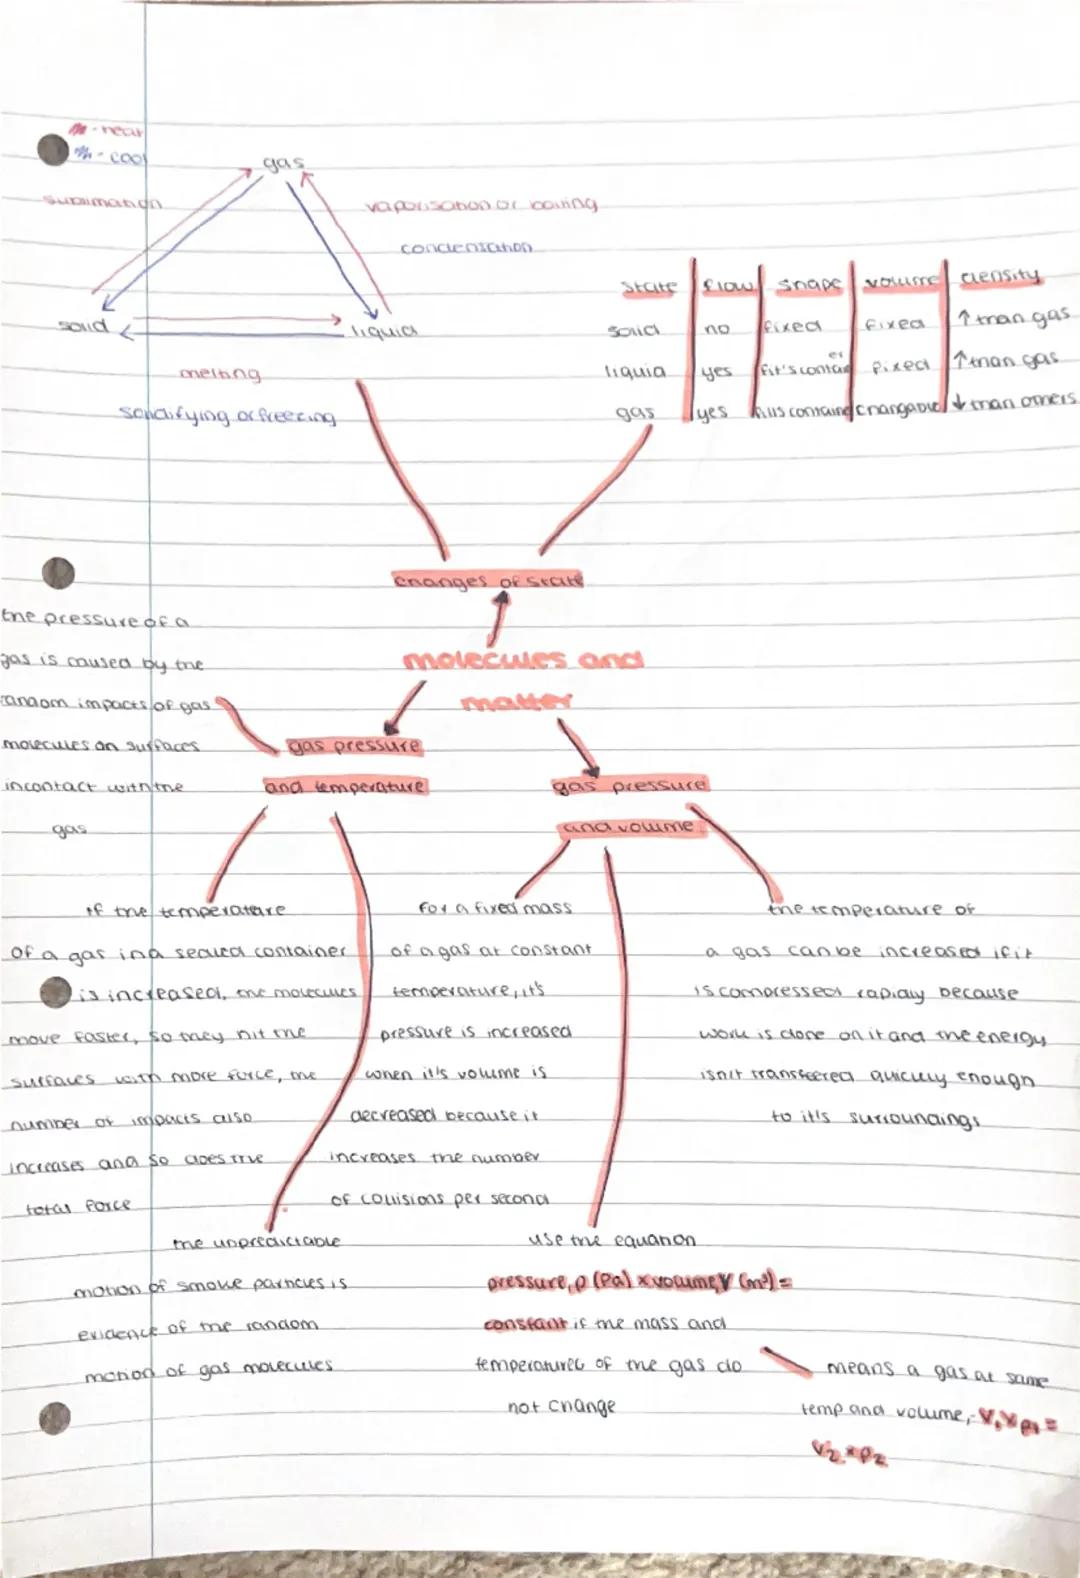 m - heat
m - cool
gas
sublimation
vaporisation or boiling
condensation
solid
liquid
melting
solidifying or freezing
state flow shape volume density
solid no fixed fixed ↑ than gas
liquid yes fit's container fixed ↑ than gas
gas yes fills container changable ↓ than others
changes of state
molecules and
matter
the pressure of a
gas is caused by the
random impacts of gas
molecules on surfaces
incontact with the
gas
gas pressure
and temperature
gas pressure
and volume
if the temperature
of a gas in a sealed container
is increased, the molecules
move faster, so they hit the
surfaces with more force, the
number of impacts also
increases and so does the
total force
the unpredictable
motion of smoke particles is
evidence of the random
motion of gas molecules
for a fixed mass
of a gas at constant
temperature, it's
pressure is increased
when it's volume is
decreased because it
increases the number
of collisions per second
use the equation
pressure, p (Pa) x volume, V (m³) =
constant if the mass and
temperature of the gas do
not change
means a gas at same
temp and volume, V₁ x p₁ =
V₂ x p₂
the temperature of
a gas can be increased if it
is compressed rapidly because
work is done on it and the energy
isn't transfeered quickly enough
to it's surroundings